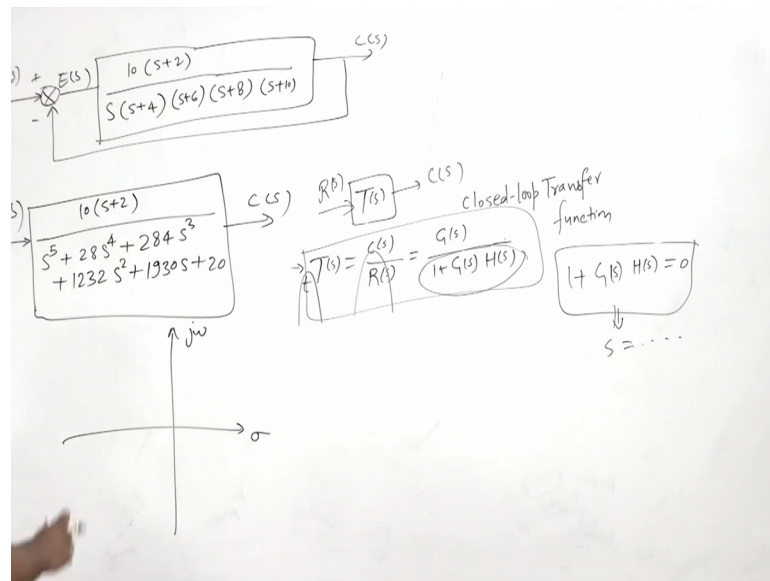 C(s)
+ E(s)
10 (s+2)
S (s+4) (s+6) (s+8) (s+10)
-
10 (s+2)
S^5 + 28 S^4 + 284 S^3
+ 1232 S^2 + 1930 S + 20
C(s)
R(s) T(s) C(s)
closed-loop Transfer
function
T(s) = C(s)/R(s) = G(s)/(1 + G(s) H(s))
1 + G(s) H(s) = 0
S = ....
jω
σ